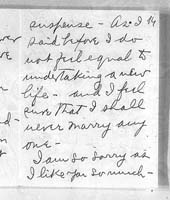 suspense - As I
said before I do
not feel equal to
undertaking a new
life - and I feel
sure that I shall
never marry any
one -
I am so sorry as
I like you so much -